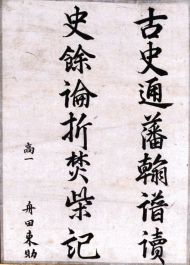 古史通藩翰譜讀
史餘論折焚柴記
高一
舟田東助